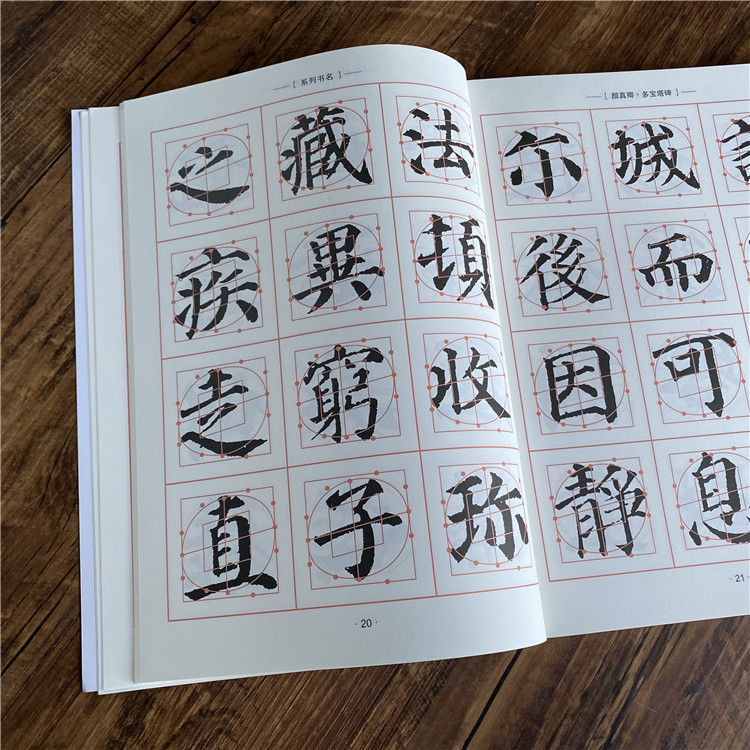 [系列书名]
法頓收珎
藏異窮子
之疾走直
·20·
[颜真卿·多宝塔碑]
城而可息
尓後因靜
·21·